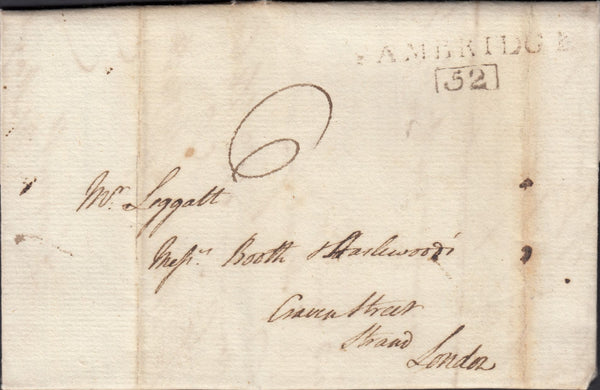 CAMBRIDGE
52
6
Mr. Leggatt
Messrs. Booth & Haslewood's
Craven Street
Strand
London